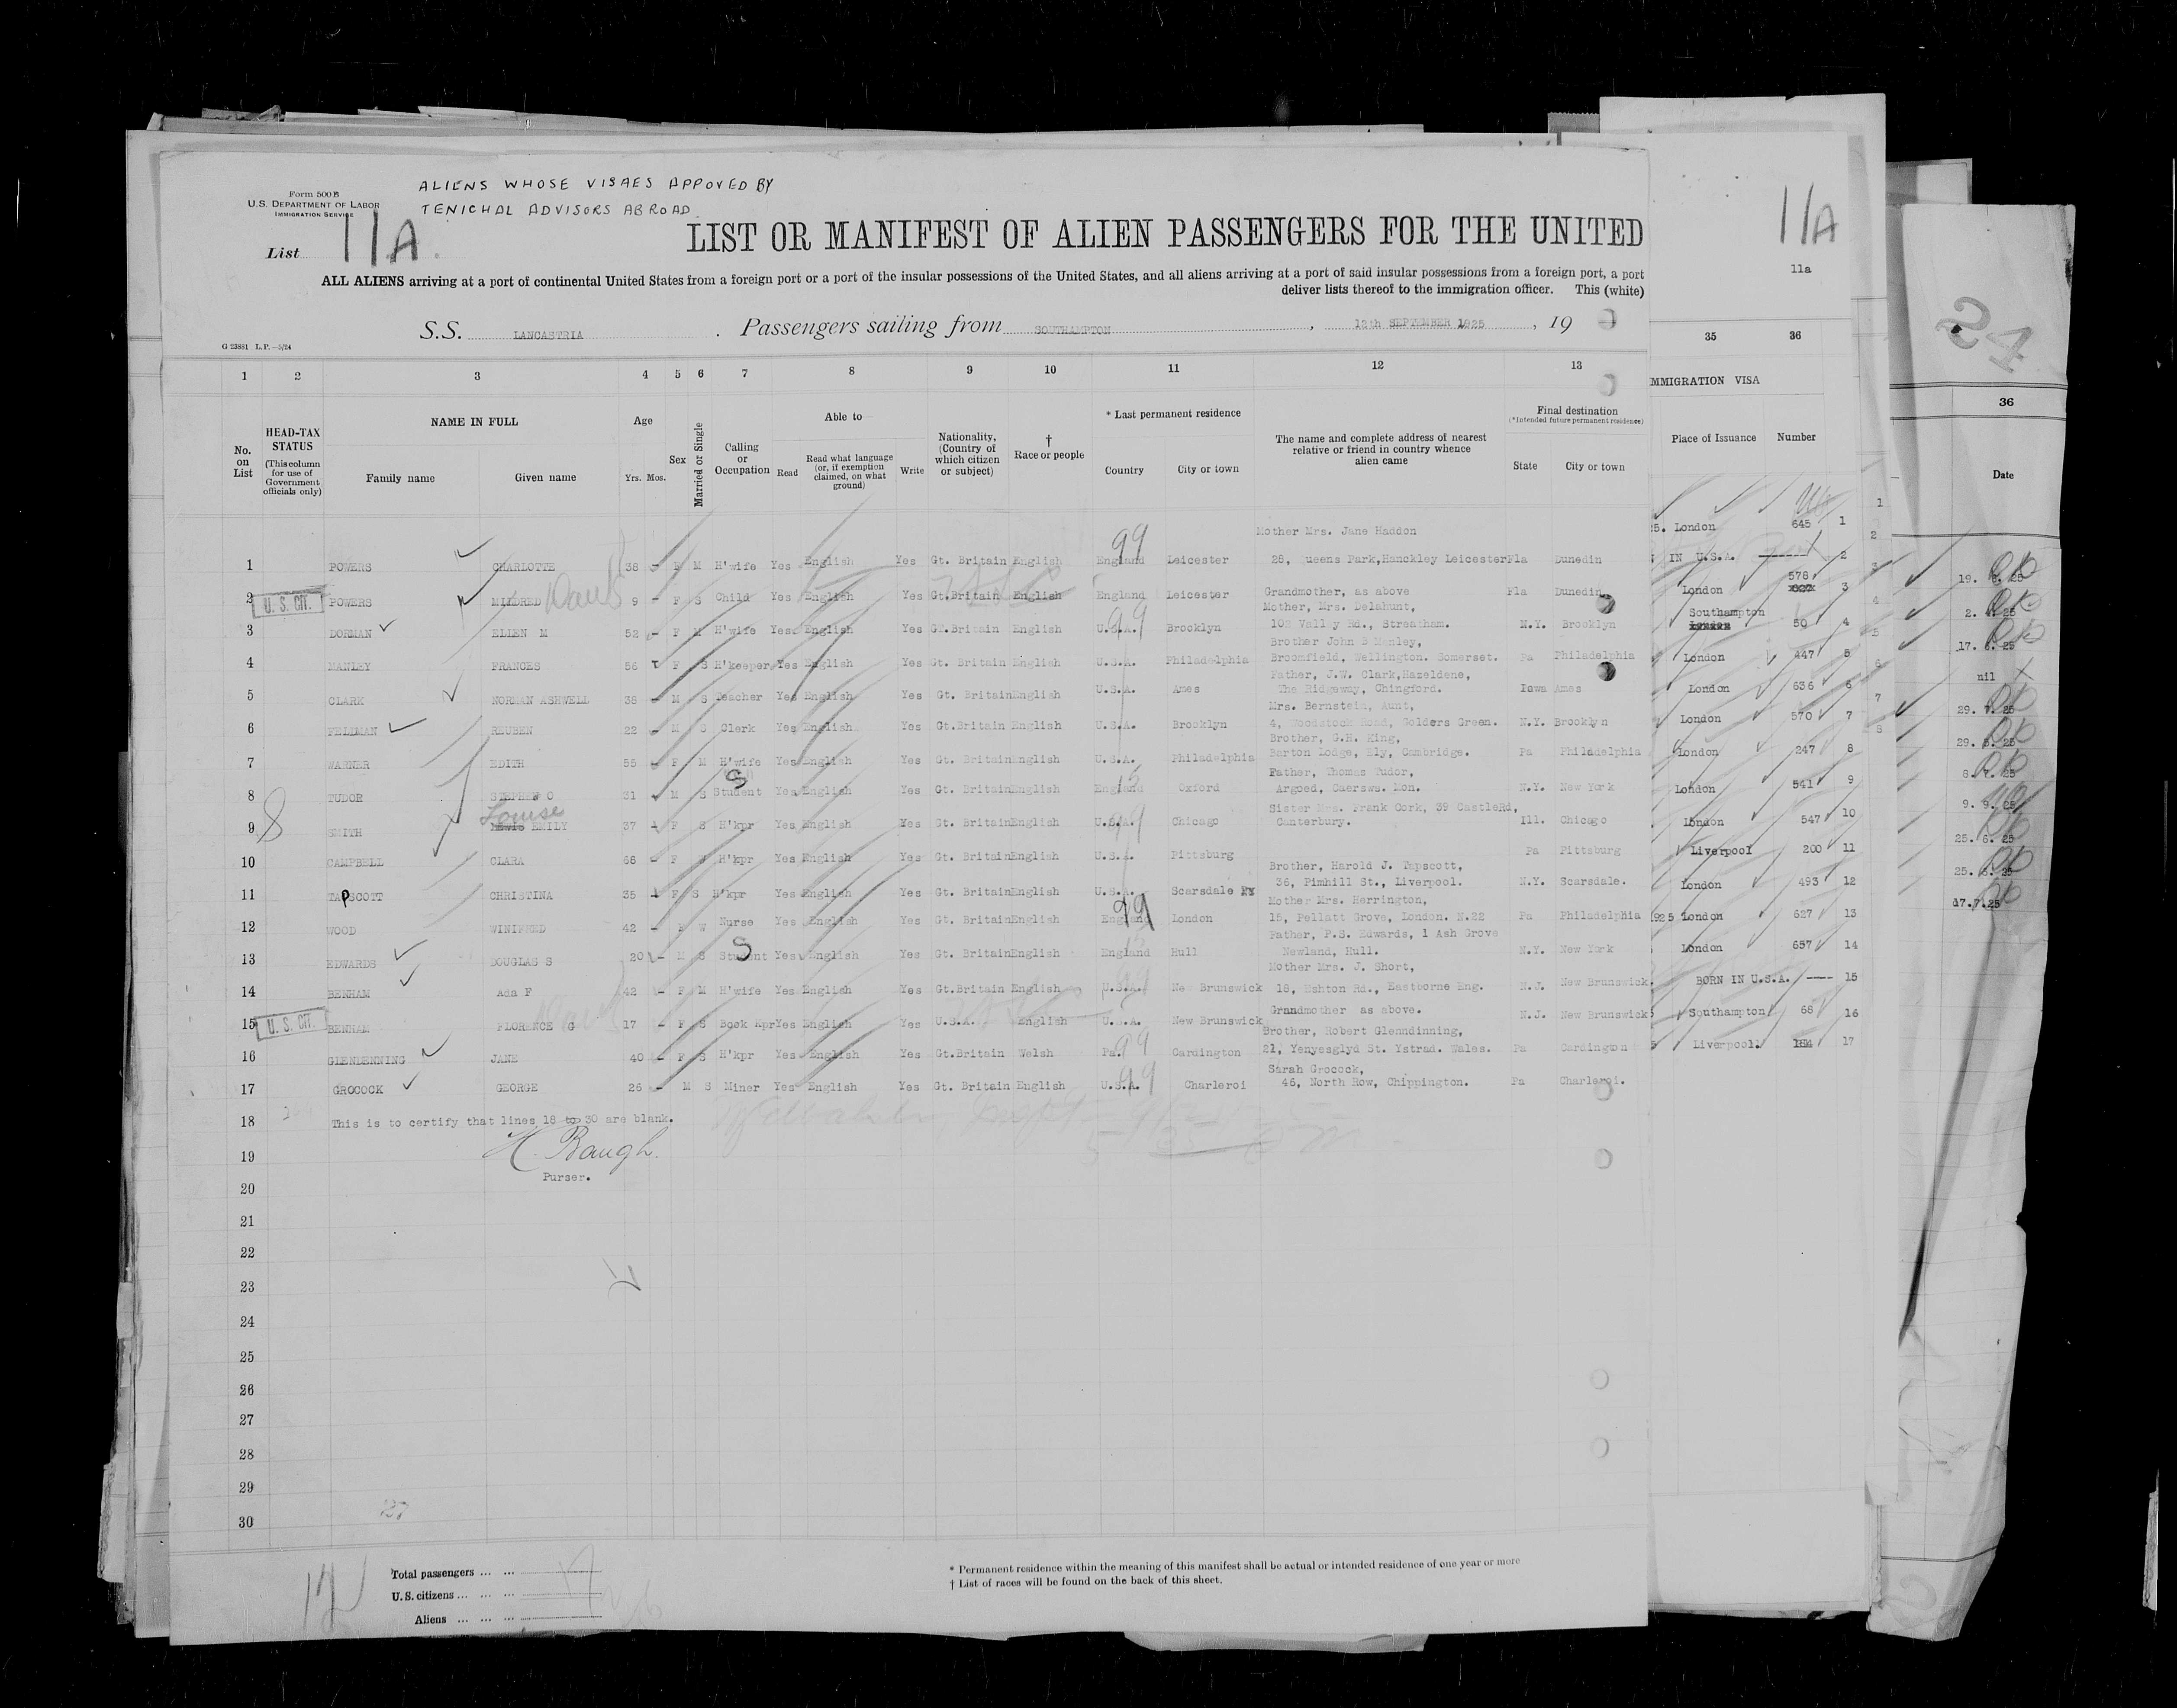 Form 500 B
U.S. DEPARTMENT OF LABOR
IMMIGRATION SERVICE
ALIENS WHOSE VISAES APPOVED BY
TENICHAL ADVISORS ABROAD
List 11A.
LIST OR MANIFEST OF ALIEN PASSENGERS FOR THE UNITED
ALL ALIENS arriving at a port of continental United States from a foreign port or a port of the insular possessions of the United States, and all aliens arriving at a port of said insular possessions from a foreign port, a port
deliver lists thereof to the immigration officer. This (white)
S.S. LANCASTRIA. Passengers sailing from SOUTHAMPTON, 12th SEPTEMBER 1925, 19
G 23881 L.P.—5/24
1 2 3 4 5 6 7 8 9 10 11 12 13
No. on List
HEAD-TAX STATUS
(This column for use of Government officials only)
NAME IN FULL
Family name Given name
Age
Yrs. Mos.
Sex
Married or Single
Calling or Occupation
Able to
Read
Read what language (or, if exemption claimed, on what ground)
Write
Nationality, (Country of which citizen or subject)
† Race or people
* Last permanent residence
Country City or town
The name and complete address of nearest relative or friend in country whence alien came
Final destination
(*Intended future permanent residence)
State City or town
Mother Mrs. Jane Haddon
1 POWERS CHARLOTTE 38 - F M H'wife Yes English Yes Gt. Britain English England 99 Leicester 28, ueens Park,Hanckley Leicester Fla Dunedin
2 U. S. CIT. POWERS MILDRED 9 - F S Child Yes English Yes Gt.Britain English England Leicester Grandmother, as above Fla Dunedin
Mother, Mrs. Delahunt,
3 DORMAN ELLEN M 52 - F M H'wife Yes English Yes Gt.Britain English U.S.A. 99 Brooklyn Vall y Rd., Streatham. N.Y. Brooklyn
Brother John B Manley,
4 MANLEY FRANCES 56 F S H'keeper Yes English Yes Gt. Britain English U.S.A. Philadelphia Broomfield, Wellington. Somerset. Pa Philadelphia
Father, J.W. Clark,Hazeldene,
5 CLARK NORMAN ASHWELL 38 - M S Teacher Yes English Yes Gt. Britain English U.S.A. Ames The Ridgeway, Chingford. Iowa Ames
Mrs. Bernstein, Aunt,
6 FELLMAN REUBEN 22 - M S Clerk Yes English Yes Gt.Britain English U.S.A. Brooklyn 4, Woodstock Road, Golders Green. N.Y. Brooklyn
Brother, G.H. King,
7 WARNER EDITH 55 - F M H'wife Yes English Yes Gt. Britain English U.S.A. Philadelphia Barton Lodge, Ely, Cambridge. Pa Philadelphia
Father, Thomas Tudor,
8 TUDOR STEPHEN O 31 - M S Student S Yes English Yes Gt. Britain English England 15 Oxford Argoed, Caersws. Mon. N.Y. New York
Louise
Sister Mrs. Frank Cork, 39 CastleRd,
9 SMITH EMILY 37 F S H'kpr Yes English Yes Gt. Britain English U.S.A. 99 Chicago Canterbury. Ill. Chicago
10 CAMPBELL CLARA 66 - F H'kpr Yes English Yes Gt. Britain English U.S.A. Pittsburg Pa Pittsburg
Brother, Harold J. Tapscott,
11 TAPSCOTT CHRISTINA 35 F S H'kpr Yes English Yes Gt. Britain English U.S.A. Scarsdale 36, Pimhill St., Liverpool. N.Y. Scarsdale.
Mother Mrs. Herrington,
12 WOOD WINIFRED 42 - F W Nurse Yes English Yes Gt. Britain English England 99 London 15, Pellatt Grove, London. N.22 Pa Philadelphia
Father, P.S. Edwards, 1 Ash Grove
13 EDWARDS DOUGLAS S 20 - M S Student S Yes English Yes Gt. Britain English England 15 Hull Newland, Hull. N.Y. New York
Mother Mrs. J. Short,
14 BENHAM Ada F 42 - F M H'wife Yes English Yes Gt.Britain English U.S.A. 99 New Brunswick 18, Eastborne Eng. N.J. New Brunswick.
15 U. S. CIT. BENHAM FLORENCE G 17 - F S Book Kpr Yes English Yes U.S.A. English U.S.A. New Brunswick Grandmother as above. N.J. New Brunswick
Brother, Robert Glenndinning,
16 GLENDENNING JANE 40 - F S H'kpr Yes English Yes Gt.Britain Welsh Pa. 99 Cardington 21, Yenyesglyd St. Ystrad. Wales. Pa Cardington
Sarah Grocock,
17 GROCOCK GEORGE 26 - M S Miner Yes English Yes Gt. Britain English U.S.A. 99 Charleroi 46, North Row, Chippington. Pa Charleroi.
18 This is to certify that lines 18 to 30 are blank.
19 H. Baugh.
Purser.
20
21
22
23
24
25
26
27
28
29
30
Total passengers ... ... 17
U.S. citizens ... ... ...
Aliens ... ... ...
* Permanent residence within the meaning of this manifest shall be actual or intended residence of one year or more
† List of races will be found on the back of this sheet.
11A
11a
35 36
MMIGRATION VISA
Place of Issuance Number
25. London 645 1
IN U.S.A. ------ 2
London 578 3
Southampton 50 4
London 447 5
London 636 6
London 570 7
London 247 8
London 541 9
London 547 10
Liverpool 200 11
London 493 12
925 London 627 13
London 657 14
BORN IN U.S.A. ---- 15
Southampton 68 16
Liverpool. 17
1
2
3
4
5
6
7
8
24
36
Date
2. 25
17. 6. 25
nil
29. 7. 25
29. 25
8. 7. 25
9. 9. 25
25. 6. 25
25. 25
17.7.25